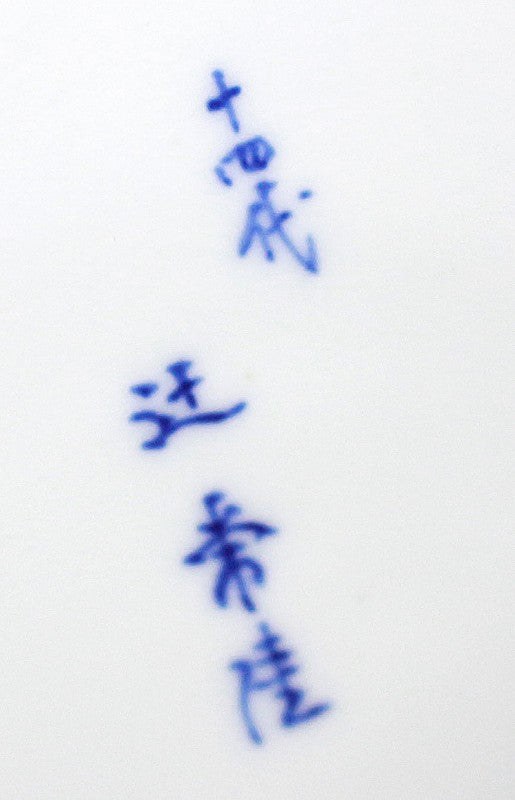 十四代
辻
常陸